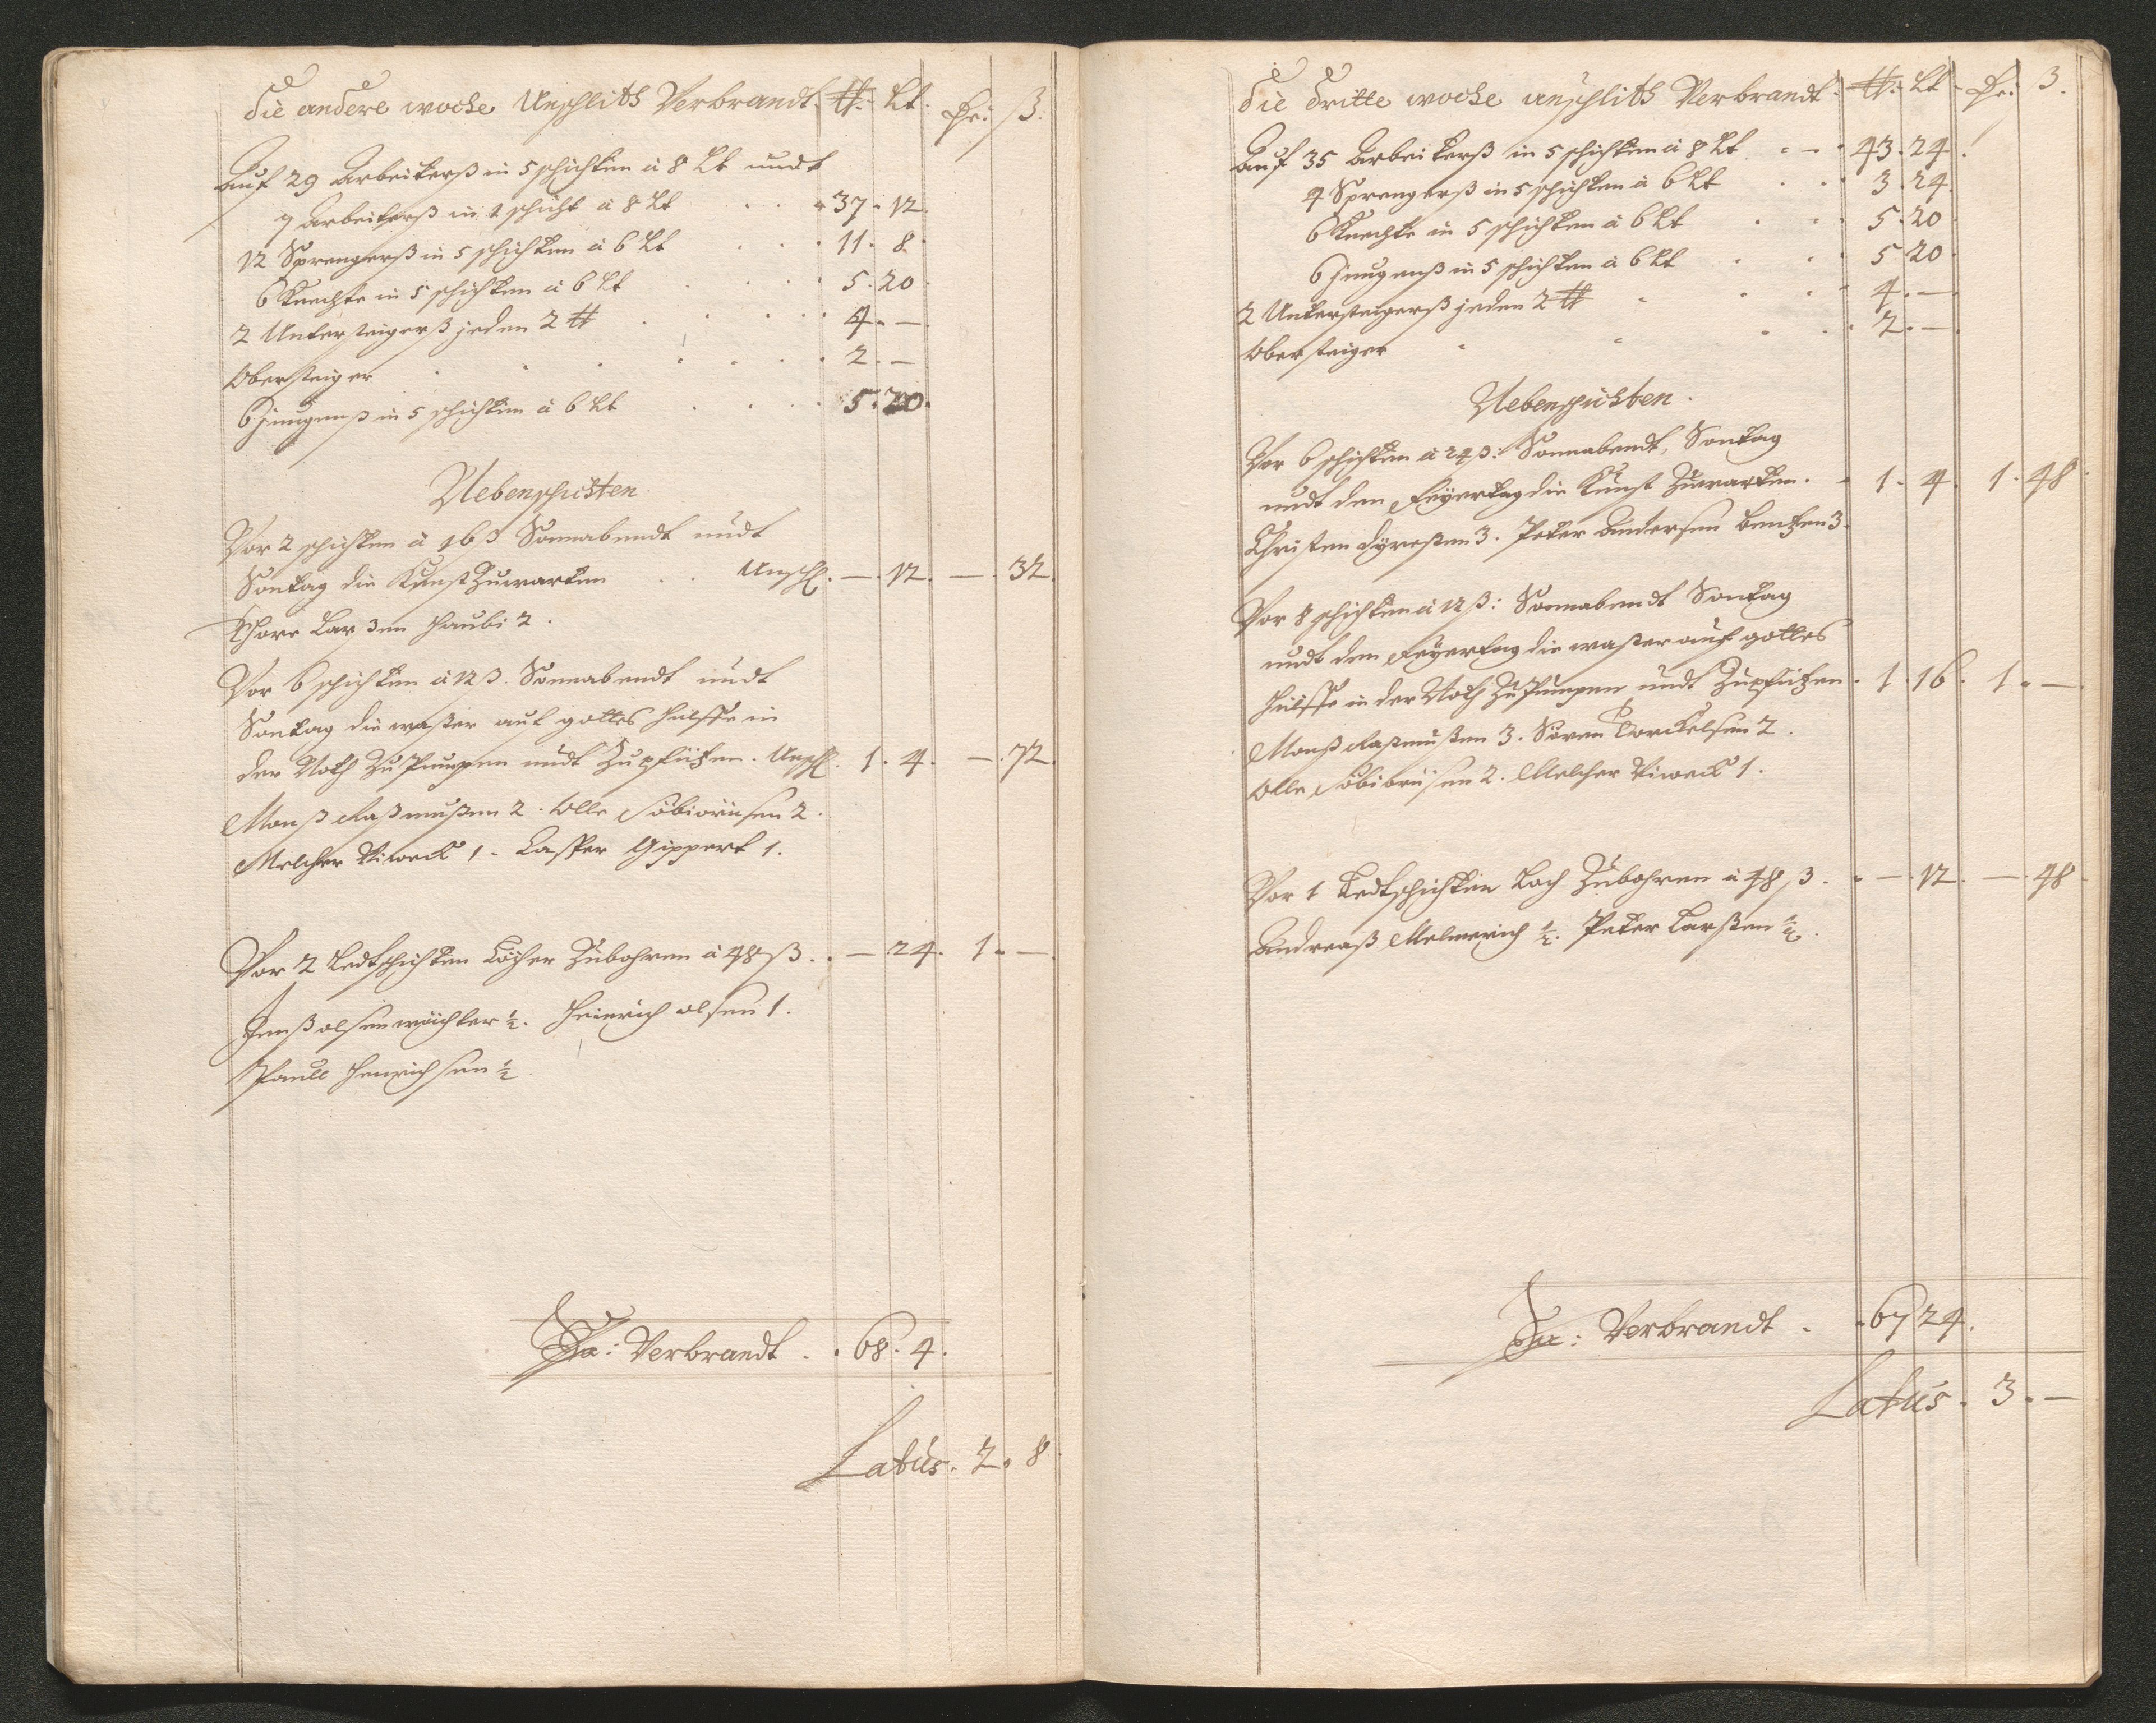 Die andere woche Unschlith Verbrandt. ℔. Lt. Dr: ß:
Auf 29 Arbeiterß in 5 schichten â 8 Lt undt
7 arbeiterß in 1 schicht â 8 Lt 37. 12.
12 Sprengerß in 5 schichten â 6 Lt 11. 8.
6 Knechte in 5 schichten â 6 Lt 5. 20
2 Untersteigerß jeden 2 ℔ 4. —
Obersteiger 2. —
6 Jungenß in 5 schichten â 6 Lt 5. 20.
Nebenschichten
Vor 2 schichten â 16 ß Sonnabendt undt
Sontag die Kunst Zuwarten Unschl. — 12. — 32.
Thore Larßen Haubi 2.
Vor 6 schichten â 12 ß. Sonnabendt undt
Sontag die waßer auf gottes hülffe in
der Noth Zu Pumpen undt Zupfützen. Unschl. 1. 4. — 72.
Monß Raßmußen 2. Olle Söbiörnsen 2.
Melcher Viweck 1. Casper Gippert 1.
Vor 2 Ledtschichten Löcher Zubohren â 48 ß. — 24. 1. —
Jenß olsen wächter ½. Heinrich olsen 1.
Paull Henrichsen ½
Sa: Verbrandt. 68. 4.
Latus. 2. 8
Die dritte woche unschlith Verbrandt. ℔. Lt. Dr: ß.
Auf 35 Arbeiterß in 5 schichten â 8 Lt 43. 24.
4 Sprengerß in 5 schichten â 6 Lt 3. 24.
6 Knechte in 5 schichten â 6 Lt 5. 20
6 Jungenß in 5 schichten â 6 Lt 5 20
2 Untersteigerß jeden 2 ℔ 4. —
Obersteiger 2. —
Nebenschichten.
Vor 6 schichten â 24 ß: Sonnabendt, Sontag
undt den Feÿertag die Kunst Zuwarten. 1. 4. 1. 48
Christen Gÿreßen 3. Peter Andersen Bentzen 3.
Vor 8 schichten â 12 ß: Sonnabendt Sontag
undt den Feÿertag die waßer auf gottes
hülffe in der Noth Zu Pumpen undt Zupfützen. 1. 16. 1. —
Monß Raßmußen 3. Sören Torckelsen 2.
Olle Söbiörnsen 2. Melcher Viweck 1.
Vor 1 Ledtschichten Loch Zubohren â 48 ß. — 12. — 48
Andreaß Melmerich ½. Peter Larßen ½.
Sa: Verbrandt. 67 24.
Latus. 3. —